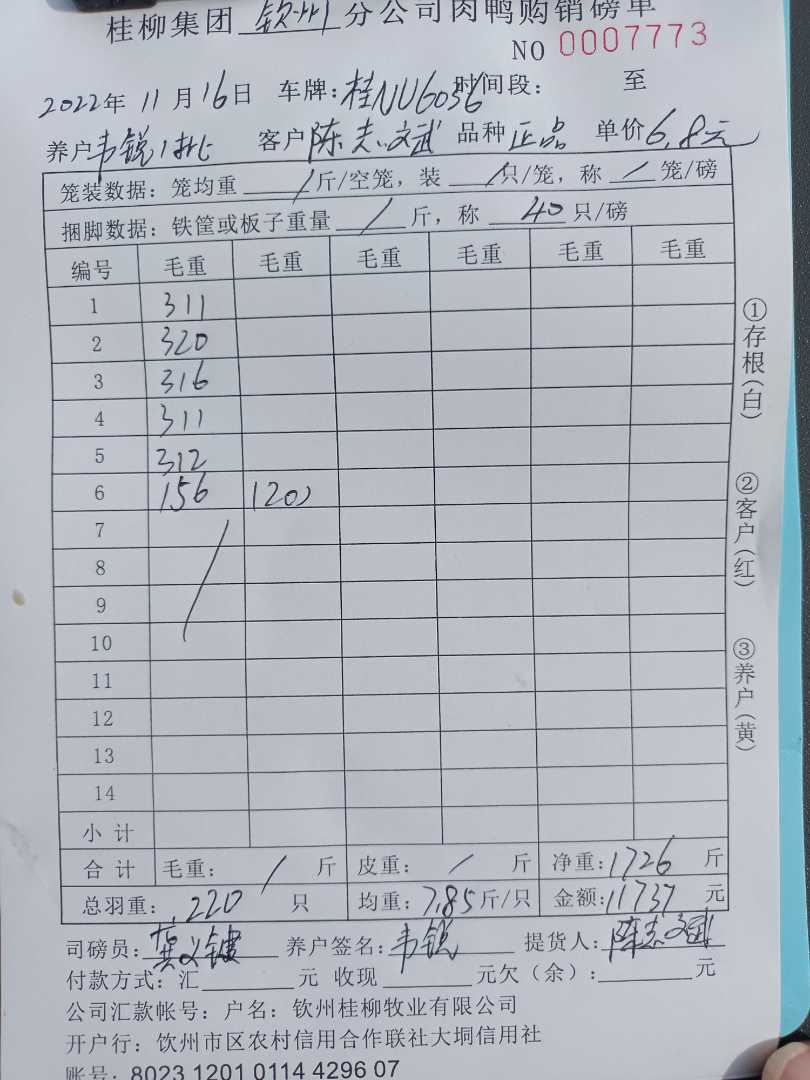 桂柳集团 钦州 分公司肉鸭购销磅单
NO 0007773
2022年 11月16日 车牌:桂NU6036 时间段: 至
养户 韦锐1批 客户 陈志斌 品种 正品 单价 6.8元
笼装数据: 笼均重 / 斤/空笼, 装 / 只/笼, 称 / 笼/磅
捆脚数据: 铁筐或板子重量 / 斤, 称 40 只/磅
编号 毛重 毛重 毛重 毛重 毛重 毛重
1 311
2 320
3 316
4 311
5 312
6 156 (20)
7
8
9
10
11
12
13
14
小计
合计 毛重: / 斤 皮重: / 斤 净重: 1726 斤
总羽重: 220 只 均重: 7.85 斤/只 金额: 11737 元
司磅员: 养户签名: 韦锐 提货人: 陈志斌
付款方式: 汇 元 收现 元欠(余): 元
公司汇款帐号: 户名: 钦州桂柳牧业有限公司
开户行: 钦州市区农村信用合作联社大垌信用社
账号: 8023 1201 0114 4296 07
①存根(白)
②客户(红)
③养户(黄)